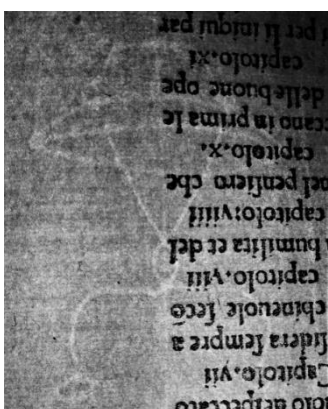 del peccato
Capitolo.vii
ſidera ſempre a
chineuole ſecõ
capitolo.viii
humilita et del
capitolo:viiii
nel penſiero che
capitolo.x.
in prima le
delle buone ope
capitolo.xi.
per li iniqui par